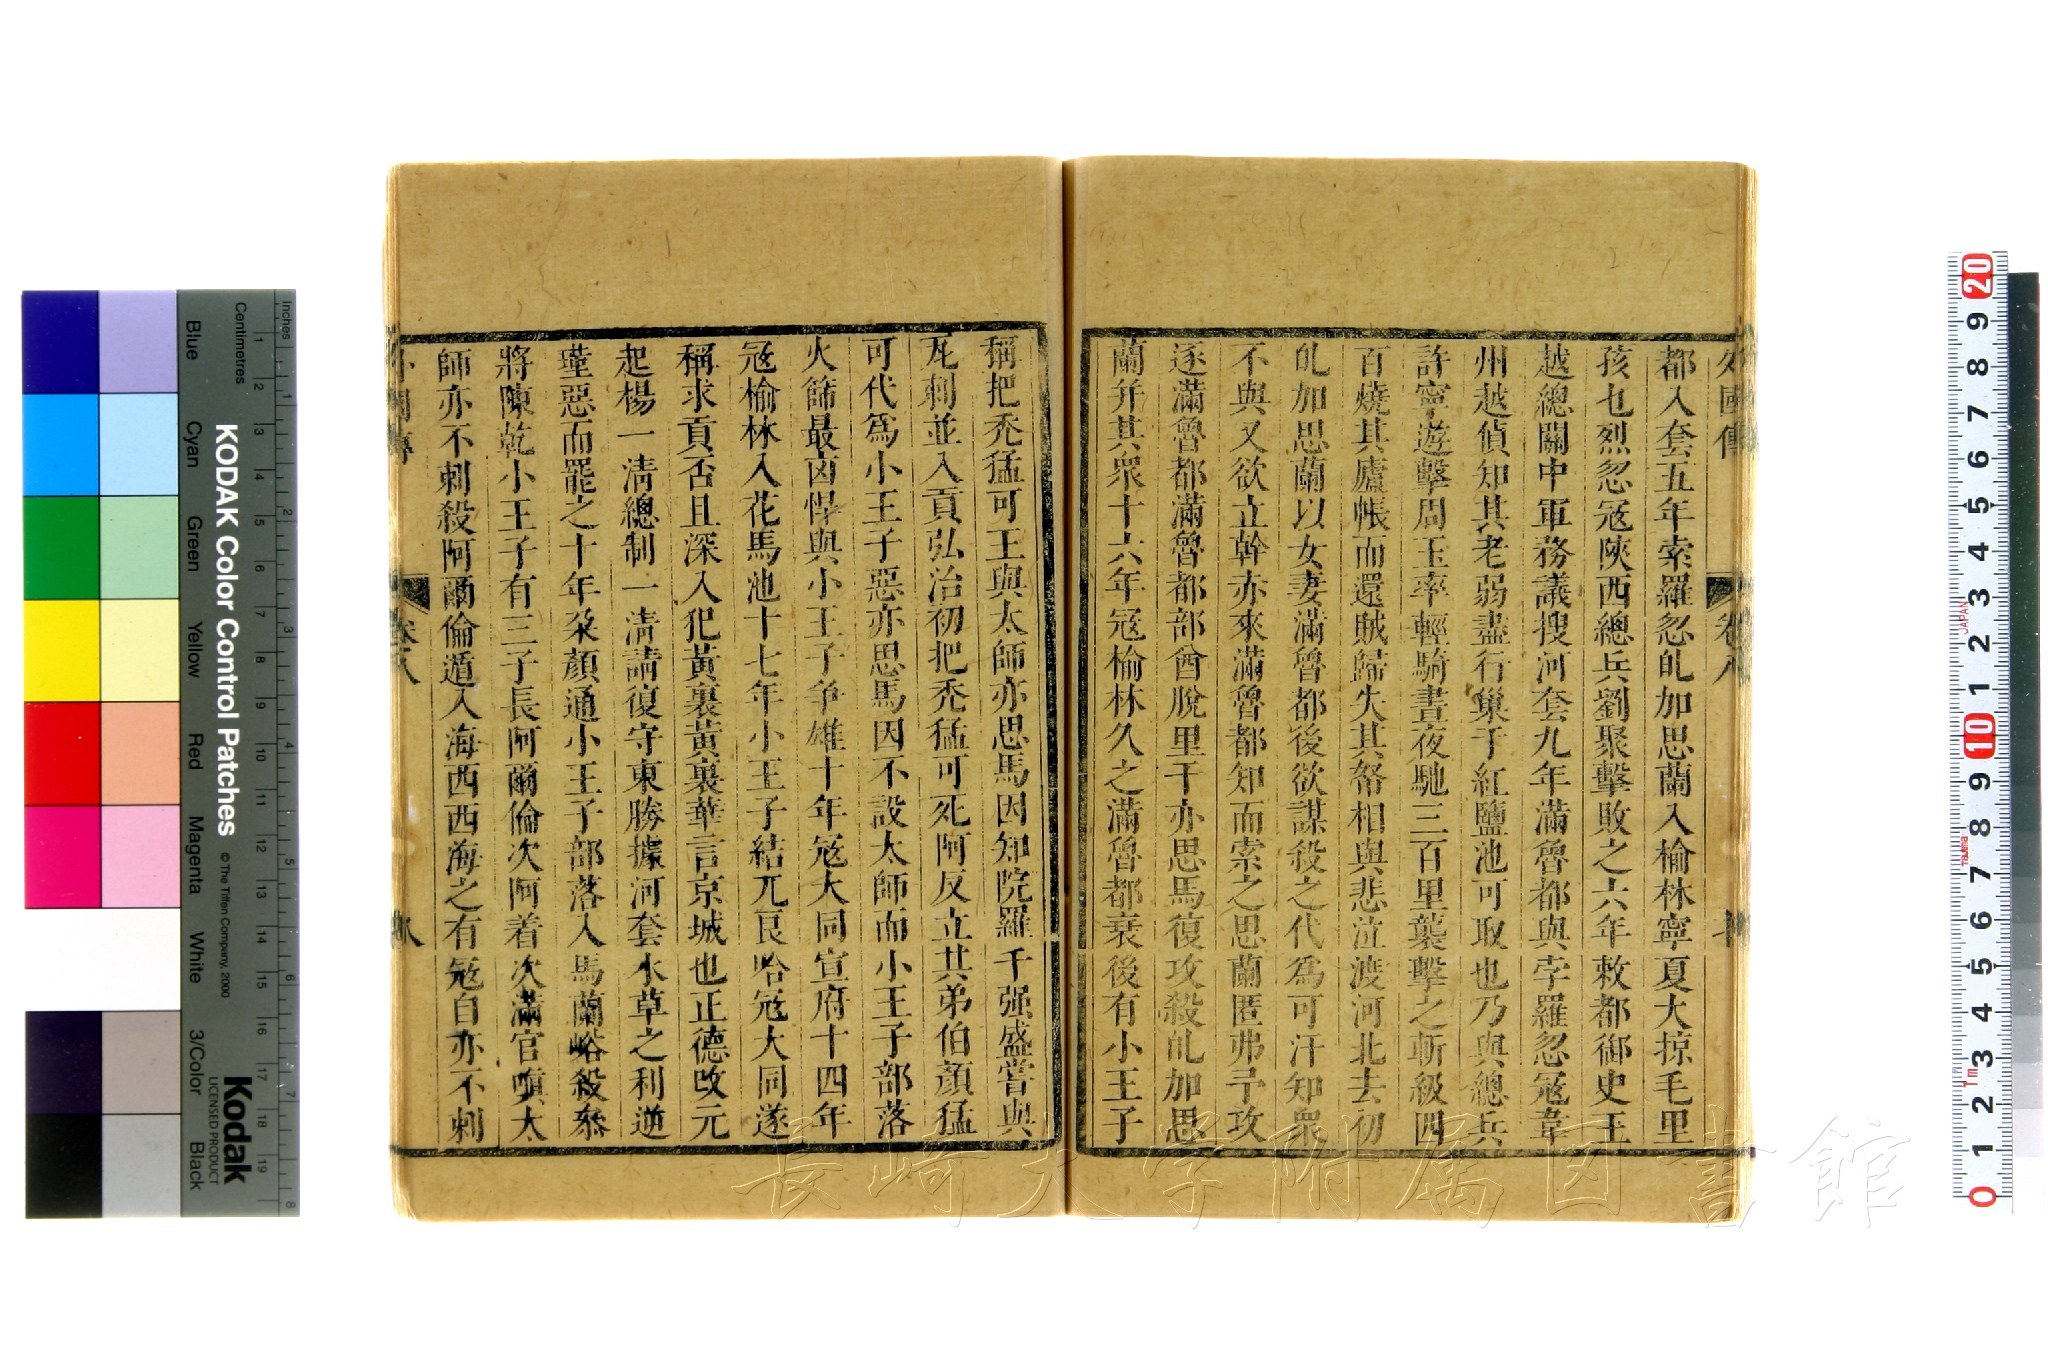 外國傳 卷八
都入套五年索羅忽乩加思蘭入榆林寧夏大掠毛里
孩乜烈忽寇陝西總兵劉聚擊敗之六年敕都御史王
越總關中軍務議搜河套九年滿魯都與孛羅忽寇韋
州越偵知其老弱盡行巢于紅鹽池可取也乃與總兵
許寧遊擊周玉率輕騎晝夜馳三百里襲擊之斬級四
百燒其廬帳而還賊歸失其帑相與悲泣渡河北去初
乩加思蘭以女妻滿魯都後欲謀殺之代為可汗知衆
不與又欲立斡亦來滿魯都知而索之思蘭匿弗予攻
逐滿魯都滿魯都部酋脫里干亦思馬復攻殺乩加思
蘭并其衆十六年寇榆林久之滿魯都衰後有小王子
稱把禿猛可王與太師亦思馬因知院羅千强盛嘗與
瓦剌並入貢弘治初把禿猛可死阿反立其弟伯顏猛
可代爲小王子惡亦思馬因不設太師而小王子部落
火篩最㐫悍與小王子争雄十年寇大同宣府十四年
寇榆林入花馬池十七年小王子結兀良哈寇大同遂
稱求貢否且深入犯黃裏黃裏華言京城也正德改元
起楊一清總制一清請復守東勝據河套水草之利逆
瑾惡而罷之十年朶顏通小王子部落入馬蘭峪殺叅
將陳乾小王子有三子長阿爾倫次阿着次滿官嗔太
師亦不剌殺阿爾倫遁入海西西海之有寇自亦不剌
外國傳 卷八 八
KODAK Color Control Patches
© The Tiffen Company, 2000
Kodak
LICENSED PRODUCT
Inches
Centimetres
Blue Cyan Green Yellow Red Magenta White 3/Color Black
長崎大学附属図書館